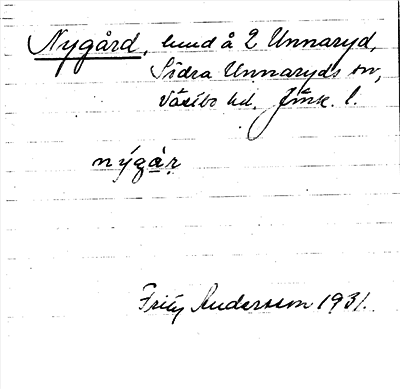 Nygård, lund å 2 Unnaryd,
Södra Unnaryds sn,
Västbo hd. Jönk. l.
nýgàṛ
Fritz Andersson 1931.